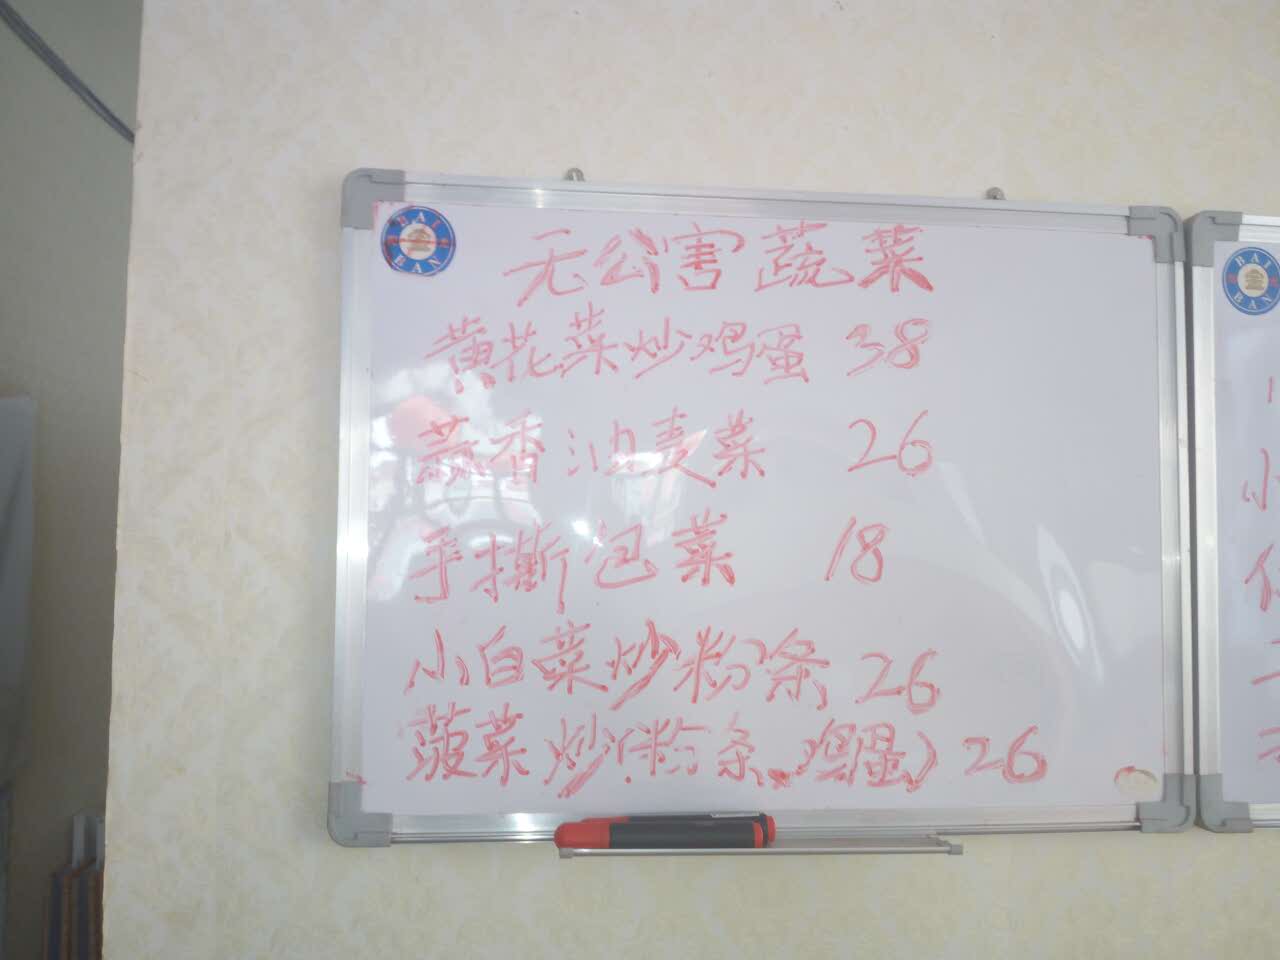 BAI
BAN
无公害蔬菜
黄花菜炒鸡蛋 38
蒜香油麦菜 26
手撕包菜 18
小白菜炒粉条 26
菠菜炒(粉条、鸡蛋) 26
BAI
BAN
小